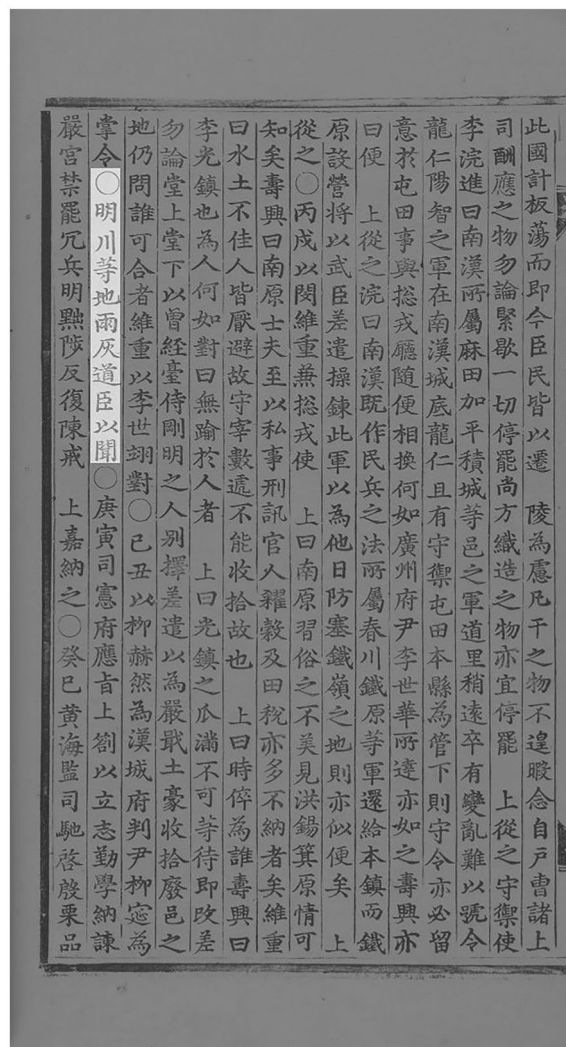 此國計板蕩而即今臣民皆以遷　陵為慮凡干之物不遑暇念自戶曹諸上
司酬應之物勿論緊歇一切停罷尚方織造之物亦宜停罷　上從之守禦使
李浣進曰南漢所屬麻田加平積城等邑之軍道里稍遠卒有變亂難以號令
龍仁陽智之軍在南漢城底龍仁且有守禦屯田本縣為管下則守令亦必留
意於屯田事與摠戎廳隨便相換何如廣州府尹李世華所達亦如之壽興亦
曰便　上從之浣曰南漢既作民兵之法所屬春川鐵原等軍還給本鎮而鐵
原設營將以武臣差遣操鍊此軍以為他日防塞鐵嶺之地則亦似便矣　上
從之○丙戌以閔維重兼摠戎使　上曰南原習俗之不美見洪錫箕原情可
知矣壽興曰南原士夫至以私事刑訊官人糶穀及田稅亦多不納者矣維重
曰水土不佳人皆厭避故守宰數遞不能收拾故也　上曰時倅為誰壽興曰
李光鎮也為人何如對曰無踰於人者　上曰光鎮之瓜滿不可等待即改差
勿論堂上堂下以曾經臺侍剛明之人別擇差遣以為嚴戢土豪收拾廢邑之
地仍問誰可合者維重以李世翊對○己丑以柳赫然為漢城府判尹柳寔為
掌令○明川等地雨灰道臣以聞○庚寅司憲府應旨上劄以立志勤學納諫
嚴宮禁罷冗兵明黜陟反復陳戒　上嘉納之○癸巳黃海監司馳啓殷栗品